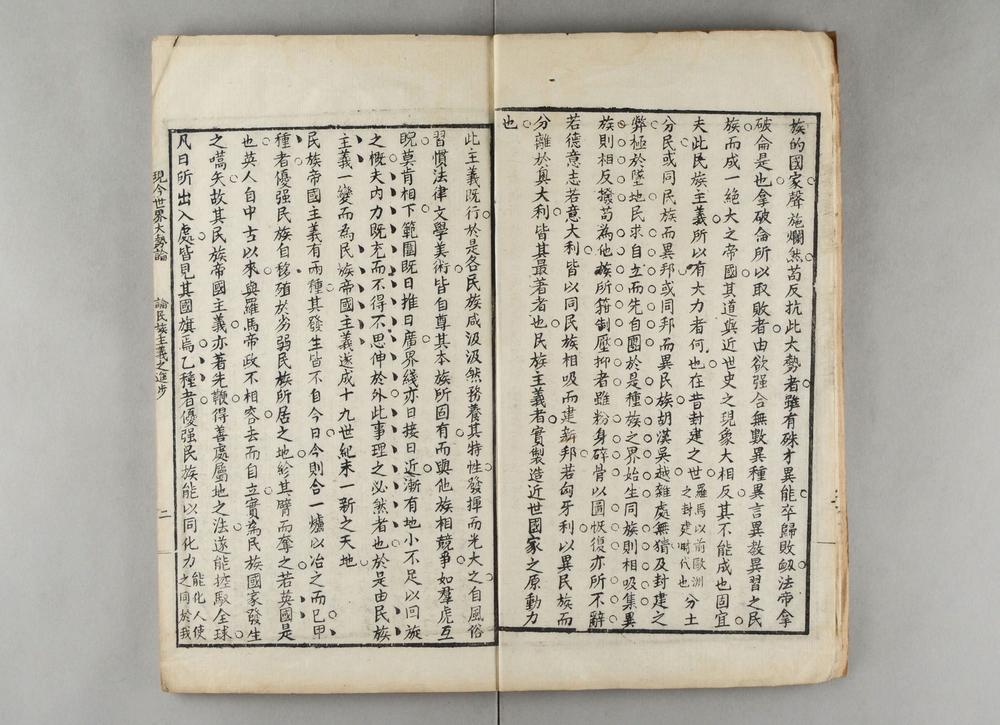 族的國家聲施爛然苟反抗此大勢者雖有殊才異能卒歸敗衂法帝拿
破侖是也拿破侖所以取敗者由欲强合無數異種異言異教異習之民
族而成一絕大之帝國其道與近世史之現象大相反其不能成也固宜
夫此民族主義所以有大力者何也在昔封建之世羅馬以前歐洲之封建時代也分土
分民或同民族而異邦或同邦而異民族胡漢吳越雜處無猜及封建之
弊極於墜地民求自立而先自團於是種族之界始生同族則相吸集異
族則相反撥苟為他族所箝制壓抑者雖粉身碎骨以圖恢復亦所不辭
若德意志若意大利皆以同民族相吸而建新邦若匈牙利以異民族而
分離於奧大利皆其最著者也民族主義者實製造近世國家之原動力
也
此主義既行於是各民族咸汲汲然務養其特性發揮而光大之自風俗
習慣法律文學美術皆自尊其本族所固有而與他族相競爭如羣虎互
睨莫肯相下範圍既日推日廣界綫亦日接日近漸有地小不足以回旋
之慨夫内力既充而不得不思伸於外此事理之必然者也於是由民族
主義一變而為民族帝國主義遂成十九世紀末一新之天地
民族帝國主義有兩種其發生皆不自今日今日今則合一爐以冶之而已甲
種者優强民族自移殖於劣弱民族所居之地紾其臂而奪之若英國是
也英人自中古以來與羅馬帝政不相容去而自立實為民族國家發生
之嚆矢故其民族帝國主義亦著先鞭得善處屬地之法遂能控馭全球
凡日所出入處皆見其國旗焉乙種者優强民族能以同化力能化人使之同於我
現今世界大勢論
論民族主義之進步
二